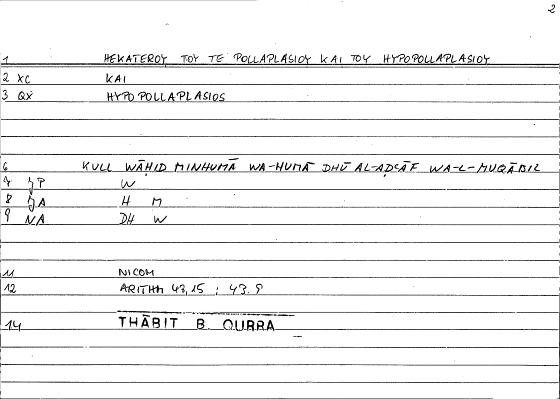 2
1 HEKATEROY TOY TE POLLAPLASIOY KAI TOY HYPOPOLLAPLASIOY
2 XC KAI
3 QX HYPOPOLLAPLASIOS
6 KULL WĀḤID MINHUMĀ WA-HUMĀ DHŪ AL-AḌʿĀF WA-L-MUQĀBIL
7 P W
8 A H M
9 NA DH W
11 NICOM
12 ARITHM 43,15 ; 43.9
14 THĀBIT B. QURRA